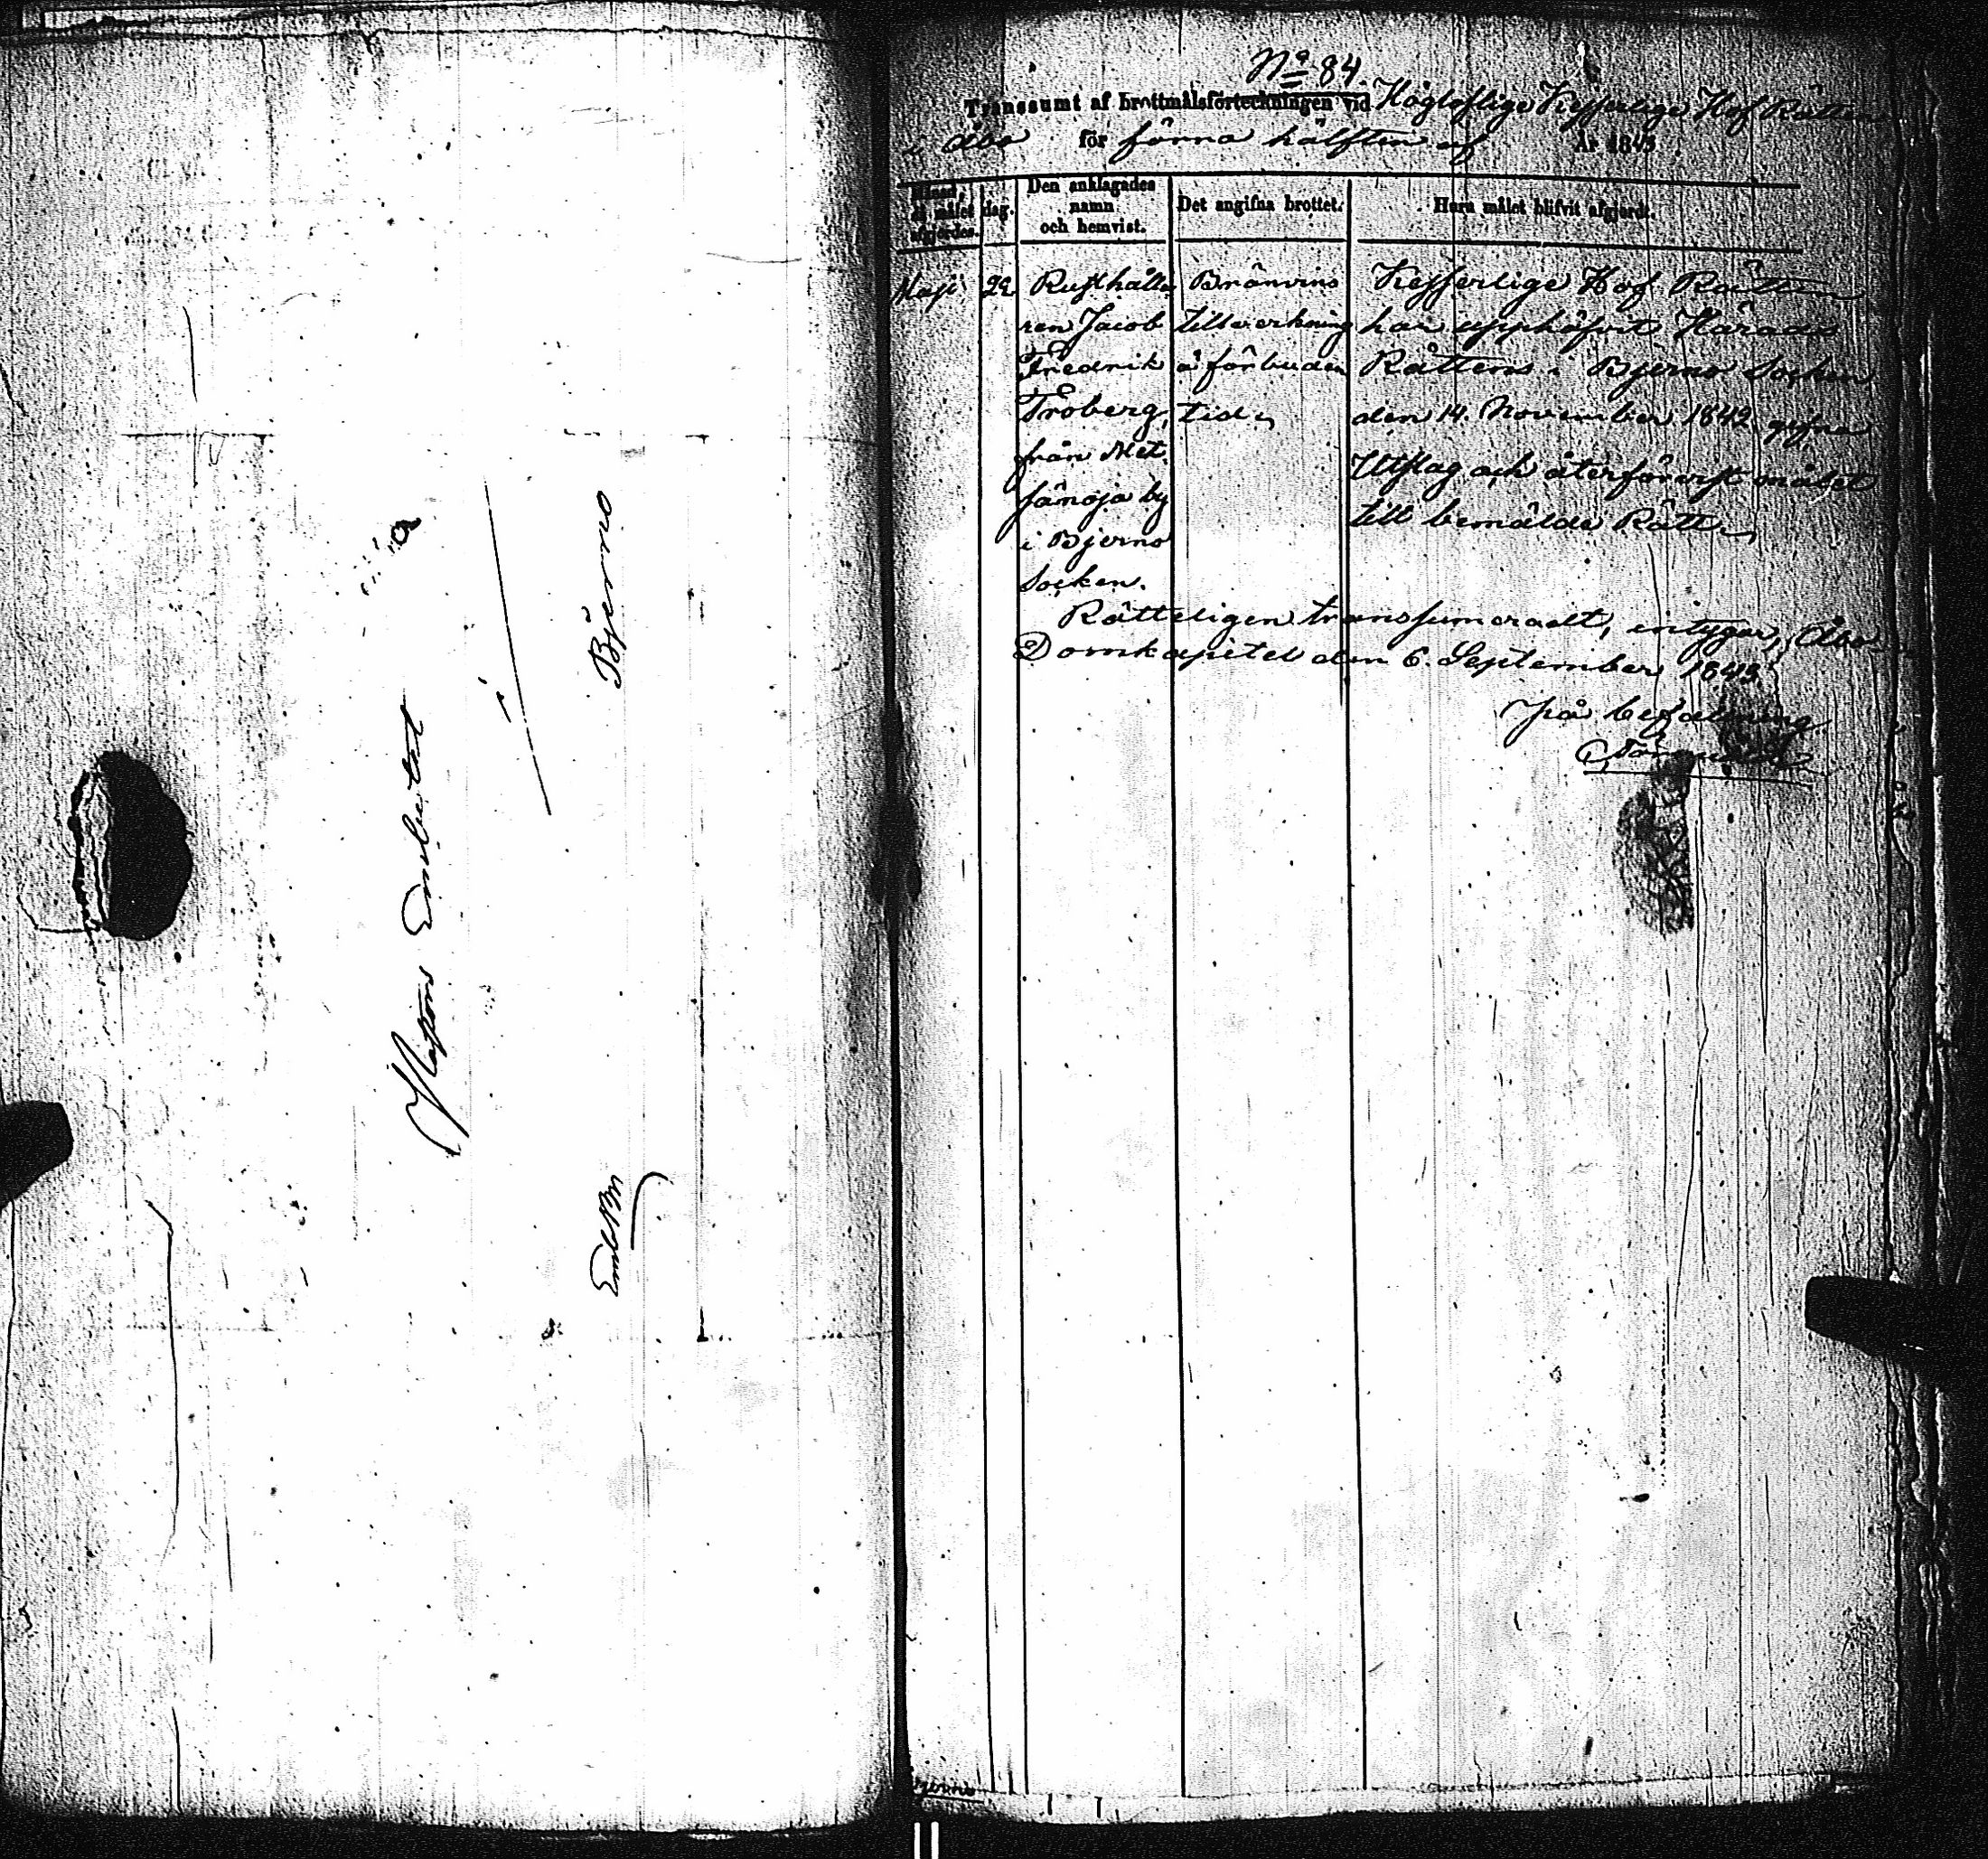 Pastors Embetet
i
Bjerno
EmbBref
No 84.
Transsumt af brottmålsförteckningen vid Högloflige Kejserlige Hof Rätten
i Åbo för förra hälften af År 1843.
Månad, då målet afgjordes.
dag.
Den anklagades namn och hemvist.
Det angifna brottet.
Huru målet blifvit afgjordt.
Maji
Rusthålla
ren Jacob
Fredrik
Froberg,
från Met
sänoja by
i Bjerno
Socken.
Bränvins
tillverkning
å förbuden
tid.
Kejserlige Hof Rätten
har upphäfvit Härads
Rättens i Bjerno Socken
den 14. November 1842 gifne
Utslag och återförvist målet
till bemälde Rätt.
Rätteligen transsumeradt, intygar, Åbo
Domkapitel den 6. September 1843.
På befallning
Bjerno